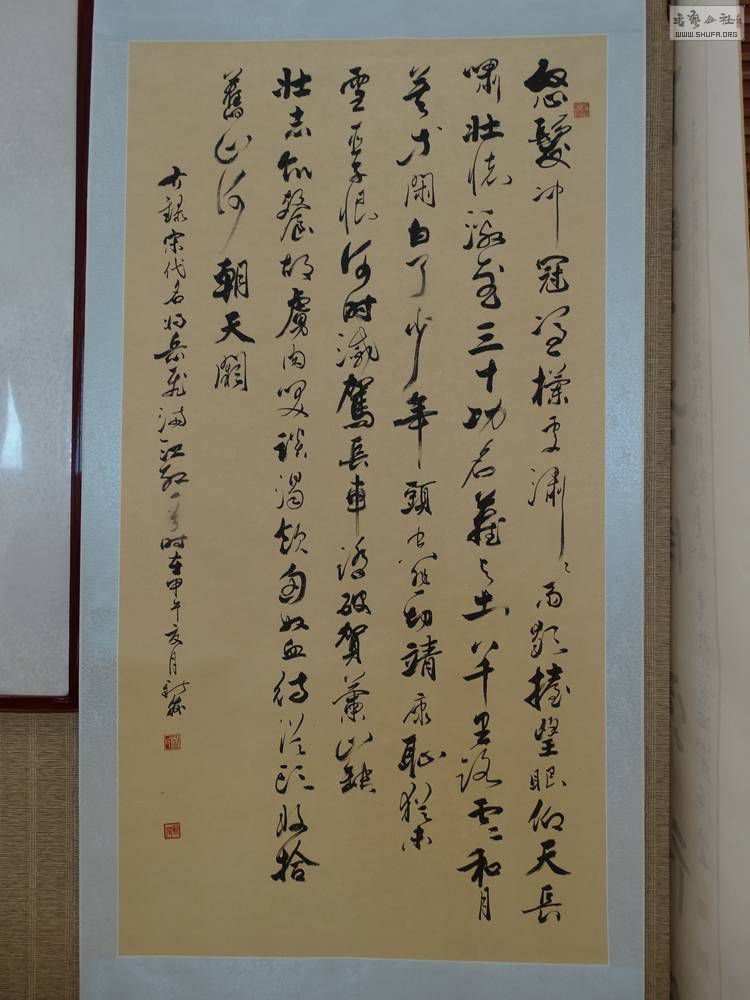 怒髮冲冠憑欄處瀟〻雨歇擡望眼仰天長
嘯壯懷激烈三十功名塵与土八千里路雲和月
莫等閑白了少年頭空悲切靖康恥猶未
雪臣子恨何时滅駕長車踏破賀蘭山缺
壯志飢餐胡虜肉笑談渴飲匈奴血待從頭收拾
舊山河朝天闕
右錄宋代名將岳飛滿江紅一首时在甲午亥月
書藝公社
WWW.SHUFA.ORG